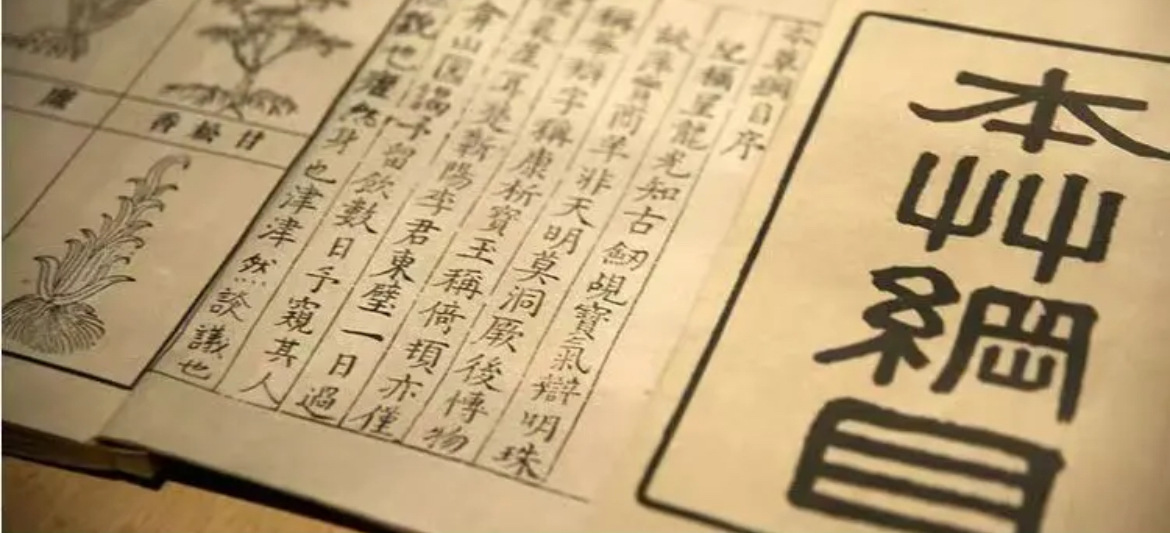 本艸綱目
本草綱目序
稱望龍光知古劒覘寶氣辯明珠
故萍實商羊非天明莫洞厥後博物
稱華辯字稱康析寶玉稱倚頓亦僅
晨星耳楚蘄陽李君東璧一日過
弇山園謁予留飲數日予窺其人
貌也癯然身也津津然談議也
甘松香